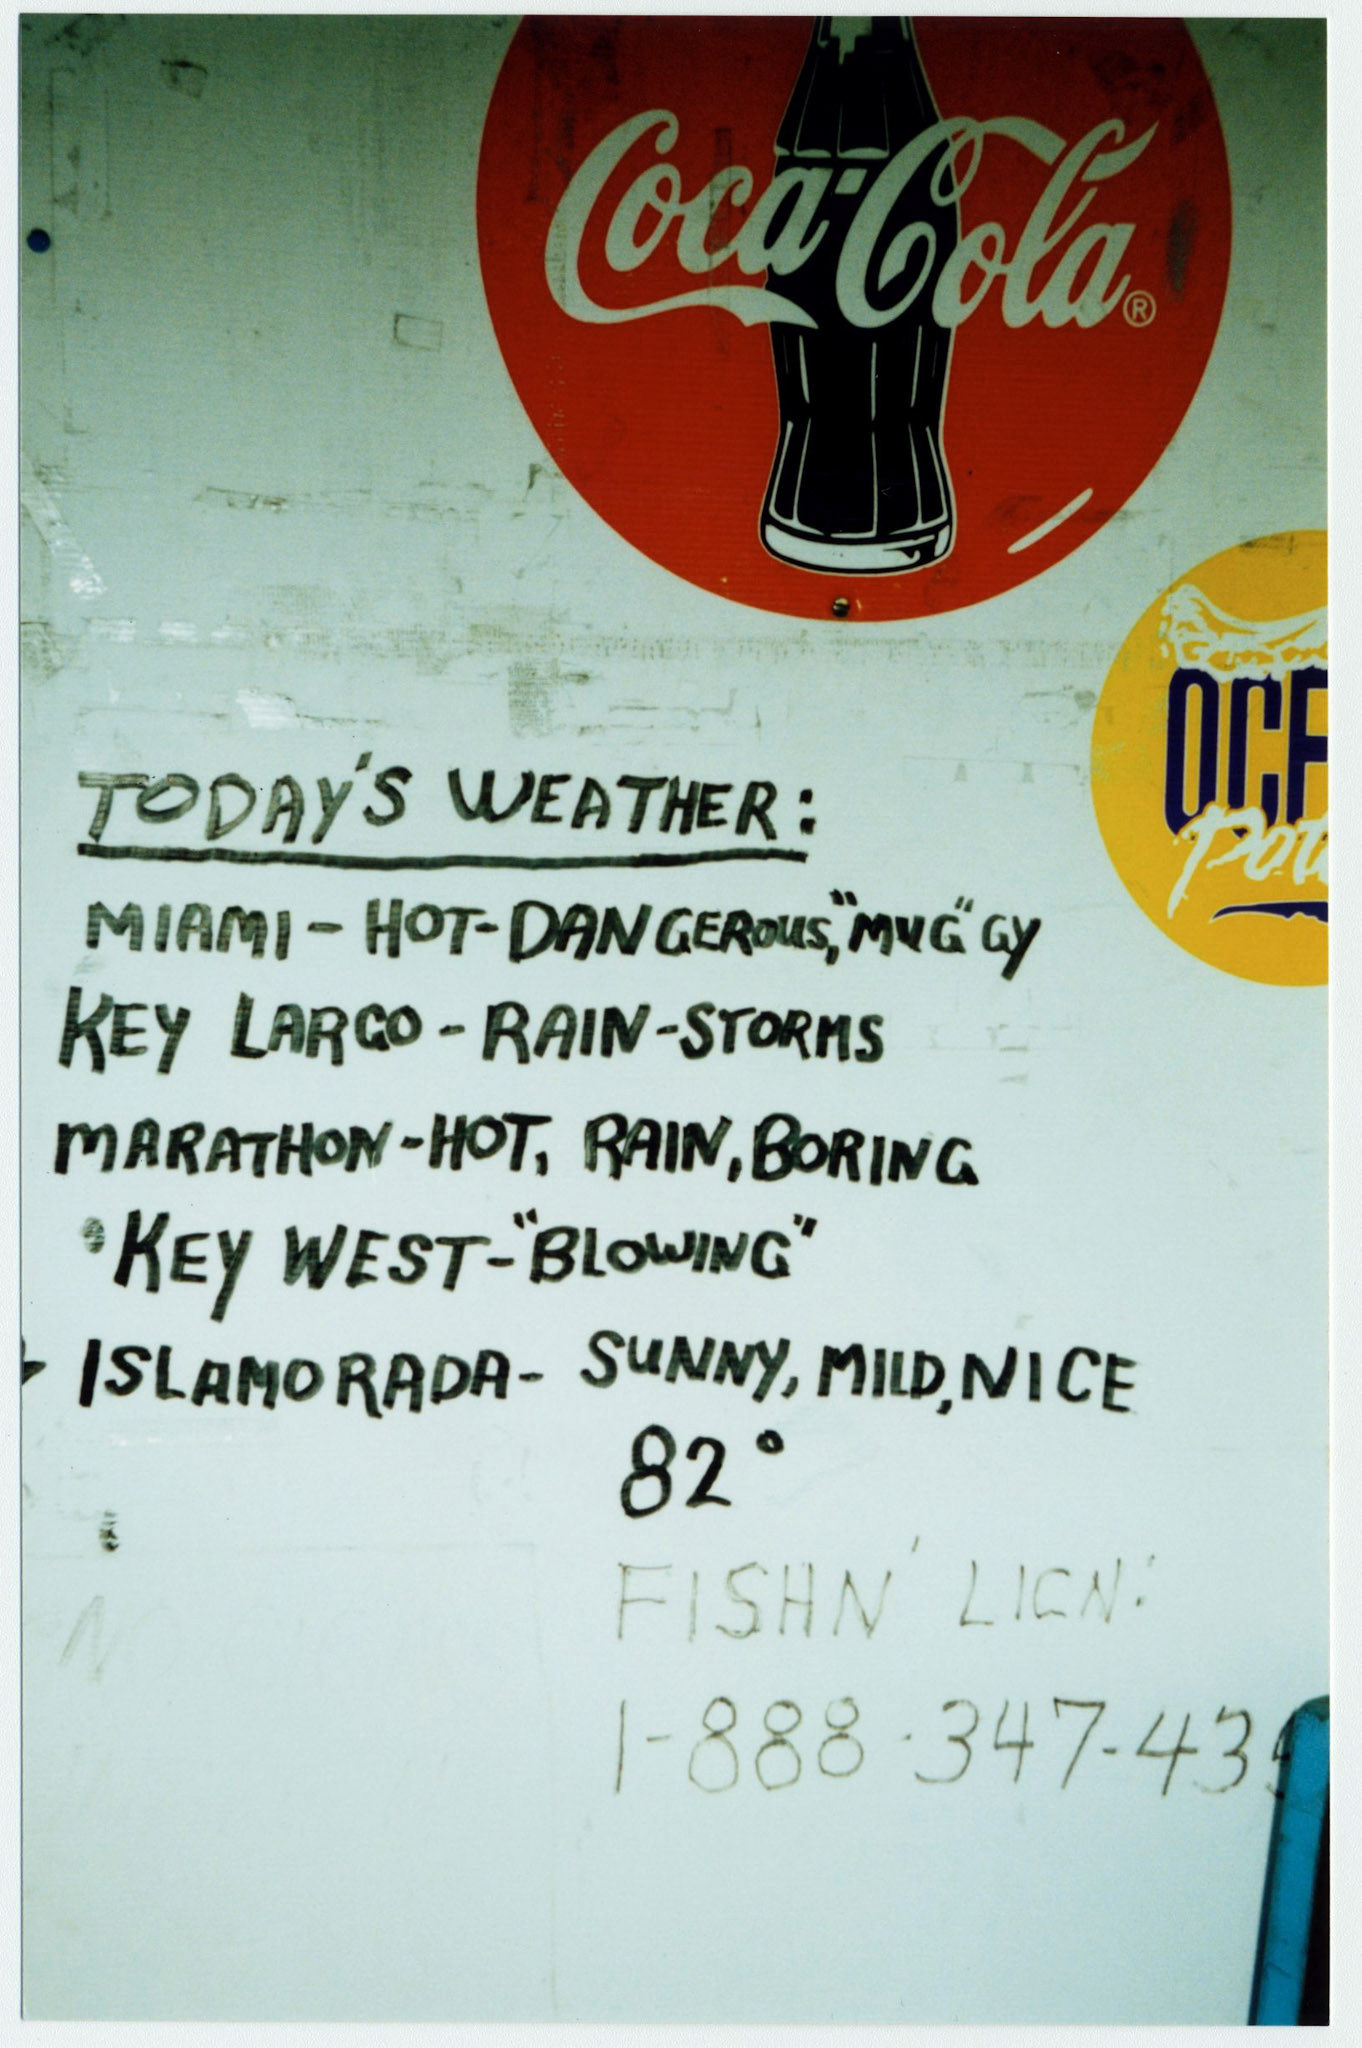 Coca-Cola®
TODAY'S WEATHER:
MIAMI - HOT-DANGEROUS, "MUG"GY
KEY LARGO - RAIN-STORMS
MARATHON - HOT, RAIN, BORING
KEY WEST - "BLOWING"
ISLAMORADA - SUNNY, MILD, NICE
82°
FISHN' LICN:
1-888-347-435